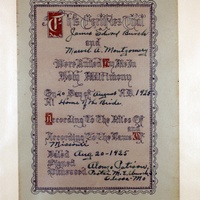 This Certifies That
James Oliver
and
Maud A. Montgomery
Were United by Me In
Holy Matrimony
On 20 Day of August A.D. 1925
At Home of the Bride
According To The Rites Of
And
According To The Laws Of
Missouri
Dated Aug 20 - 1925
Signed
Witnessed
Pastor M. E. Church
Mo